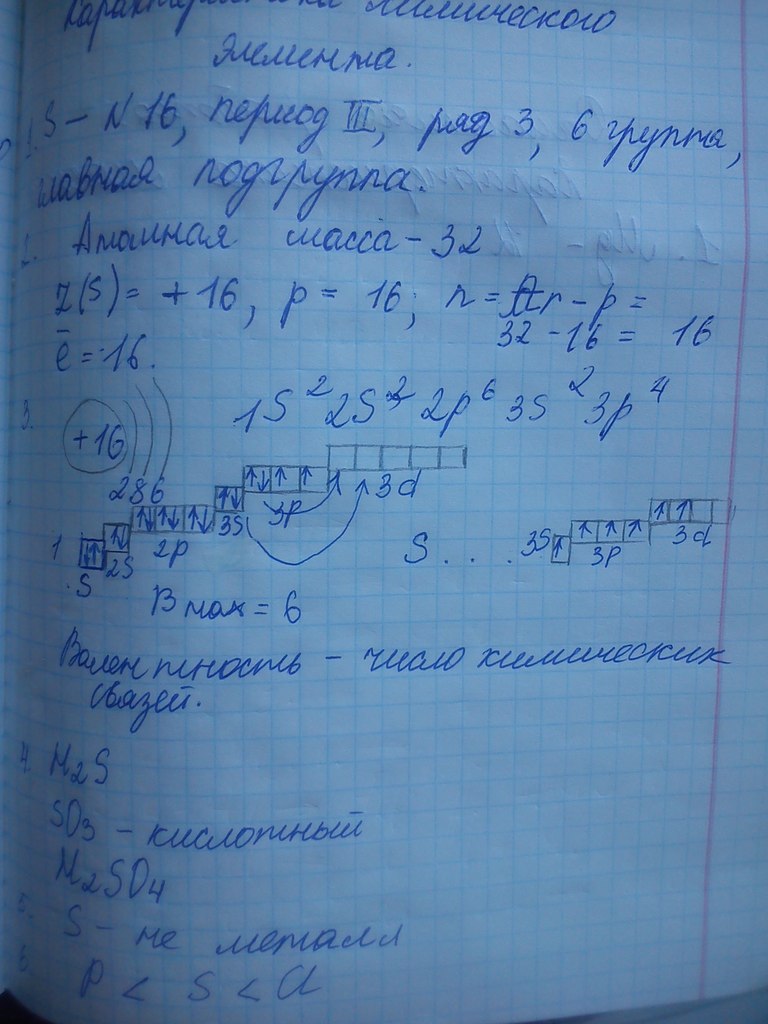 Характеристика химического
элемента.
1. S – N 16, период III, ряд 3, 6 группа,
главная подгруппа.
2. Атомная масса – 32
Z(S) = +16, p = 16; n = Ar – p =
32 – 16 = 16
ē = 16.
3. +16 1S² 2S² 2p⁶ 3s² 3p⁴
2 8 6
3p 3d
1S 2S 2p 3S
S . . . . 3S 3p 3d
B max = 6
Валентность – число химических
связей.
4. H₂S
SO₃ – кислотный
H₂SO₄
5. S – не металл
6 P < S < Cl